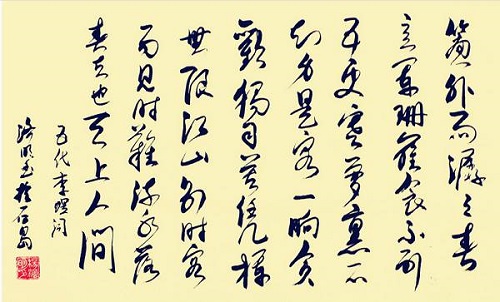 簾外雨潺々春
意闌珊羅衾不耐
五更寒夢裏不
知身是客一晌貪
歡獨自莫凭欄
無限江山別時容
易見時難流水落
春去也天上人間
五代李煜詞
書於石島